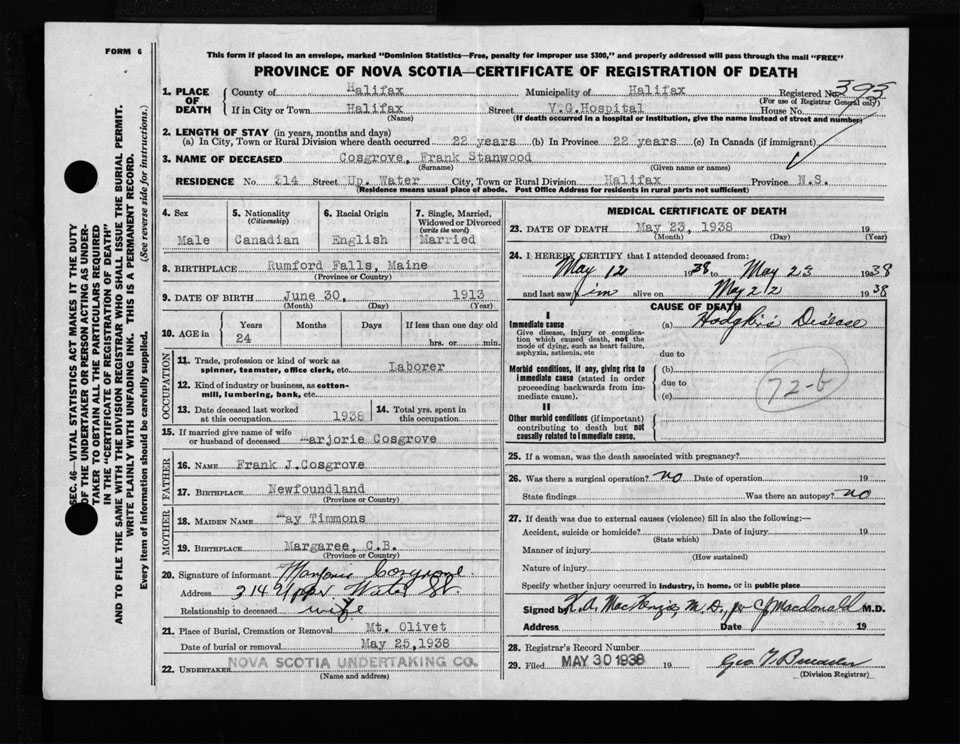 FORM 6
This form if placed in an envelope, marked "Dominion Statistics—Free, penalty for improper use $300," and properly addressed will pass through the mail "FREE"
PROVINCE OF NOVA SCOTIA—CERTIFICATE OF REGISTRATION OF DEATH
1. PLACE OF DEATH County of Halifax Municipality of Halifax Registered No. 393
(For use of Registrar General only)
If in City or Town Halifax Street V.G.Hospital House No.
(Name) (If death occurred in a hospital or institution, give the name instead of street and number)
2. LENGTH OF STAY (in years, months and days)
(a) In City, Town or Rural Division where death occurred 22 years (b) In Province 22 years (c) In Canada (if immigrant)
3. NAME OF DECEASED Cosgrove, Frank Stanwood
(Surname) (Given name or names)
RESIDENCE No 314 Street Up. Water City, Town or Rural Division Halifax Province N.S.
(Residence means usual place of abode. Post Office Address for residents in rural parts not sufficient)
4. Sex
Male
5. Nationality
(Citizenship)
Canadian
6. Racial Origin
English
7. Single, Married, Widowed or Divorced
(write the word)
Married
8. BIRTHPLACE Rumford Falls, Maine
(Province or Country)
9. DATE OF BIRTH June 30, 1913
(Month) (Day) (Year)
10. AGE in Years Months Days If less than one day old
24 hrs. or min.
OCCUPATION
11. Trade, profession or kind of work as
spinner, teamster, office clerk, etc. Laborer
12. Kind of industry or business, as cotton-
mill, lumbering, bank, etc.
13. Date deceased last worked
at this occupation 1938
14. Total yrs. spent in
this occupation
15. If married give name of wife
or husband of deceased Marjorie Cosgrove
FATHER
16. NAME Frank J.Cosgrove
17. BIRTHPLACE Newfoundland
(Province or Country)
MOTHER
18. MAIDEN NAME May Timmons
19. BIRTHPLACE Margaree, C.B.
(Province or Country)
20. Signature of informant Marjorie Cosgrove
Address 314 Upper Water St.
Relationship to deceased wife
21. Place of Burial, Cremation or Removal Mt. Olivet
Date of burial or removal May 25,1938
22. UNDERTAKER NOVA SCOTIA UNDERTAKING CO.
(Name and address)
MEDICAL CERTIFICATE OF DEATH
23. DATE OF DEATH May 23, 1938 19
(Month) (Day) (Year)
24. I HEREBY CERTIFY that I attended deceased from:
May 12 1938 to May 23 1938
and last saw him alive on May 22 1938
CAUSE OF DEATH
I
Immediate cause (a) Hodgkin's Disease
Give disease, injury or complica-
tion which caused death, not the
mode of dying, such as heart failure,
asphyxia, asthenia, etc
due to
Morbid conditions, if any, giving rise to
immediate cause (stated in order
proceeding backwards from im-
mediate cause).
(b)
due to
(c)
72-b
II
Other morbid conditions (if important)
contributing to death but not
causally related to immediate cause.
25. If a woman, was the death associated with pregnancy?
26. Was there a surgical operation? no Date of operation 19
State findings Was there an autopsy? no
27. If death was due to external causes (violence) fill in also the following:—
Accident, suicide or homicide? Date of injury 19
(State which)
Manner of injury
(How sustained)
Nature of injury
Specify whether injury occurred in industry, in home, or in public place
Signed by K. A. MacKenzie, M.D., per C J Macdonald M.D.
Address Date 19
28. Registrar's Record Number
29. Filed MAY 30 1938 19
(Division Registrar)
SEC. 46—VITAL STATISTICS ACT MAKES IT THE DUTY
OF THE UNDERTAKER OR PERSON ACTING AS UNDER-
TAKER TO OBTAIN ALL THE PARTICULARS REQUIRED
IN THE "CERTIFICATE OF REGISTRATION OF DEATH"
AND TO FILE THE SAME WITH THE DIVISION REGISTRAR WHO SHALL ISSUE THE BURIAL PERMIT.
WRITE PLAINLY WITH UNFADING INK. THIS IS A PERMANENT RECORD.
Every item of information should be carefully supplied. (See reverse side for instructions.)